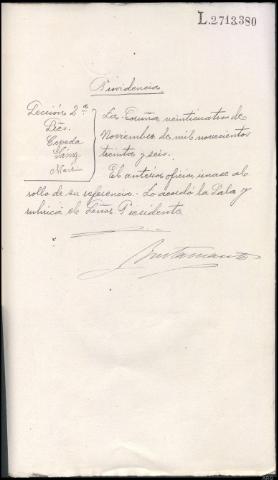 L.2713,380
Providencia
Sección 2ª
Dres.
Cepeda
Sanz
Marin
La Coruña veinticuatro de
Noviembre de mil novecientos
treinta y seis.
El anterior oficio, unase al
rollo de su referencia. Lo acordó la Sala y
rubrica el Señor Presidente
Bustamante